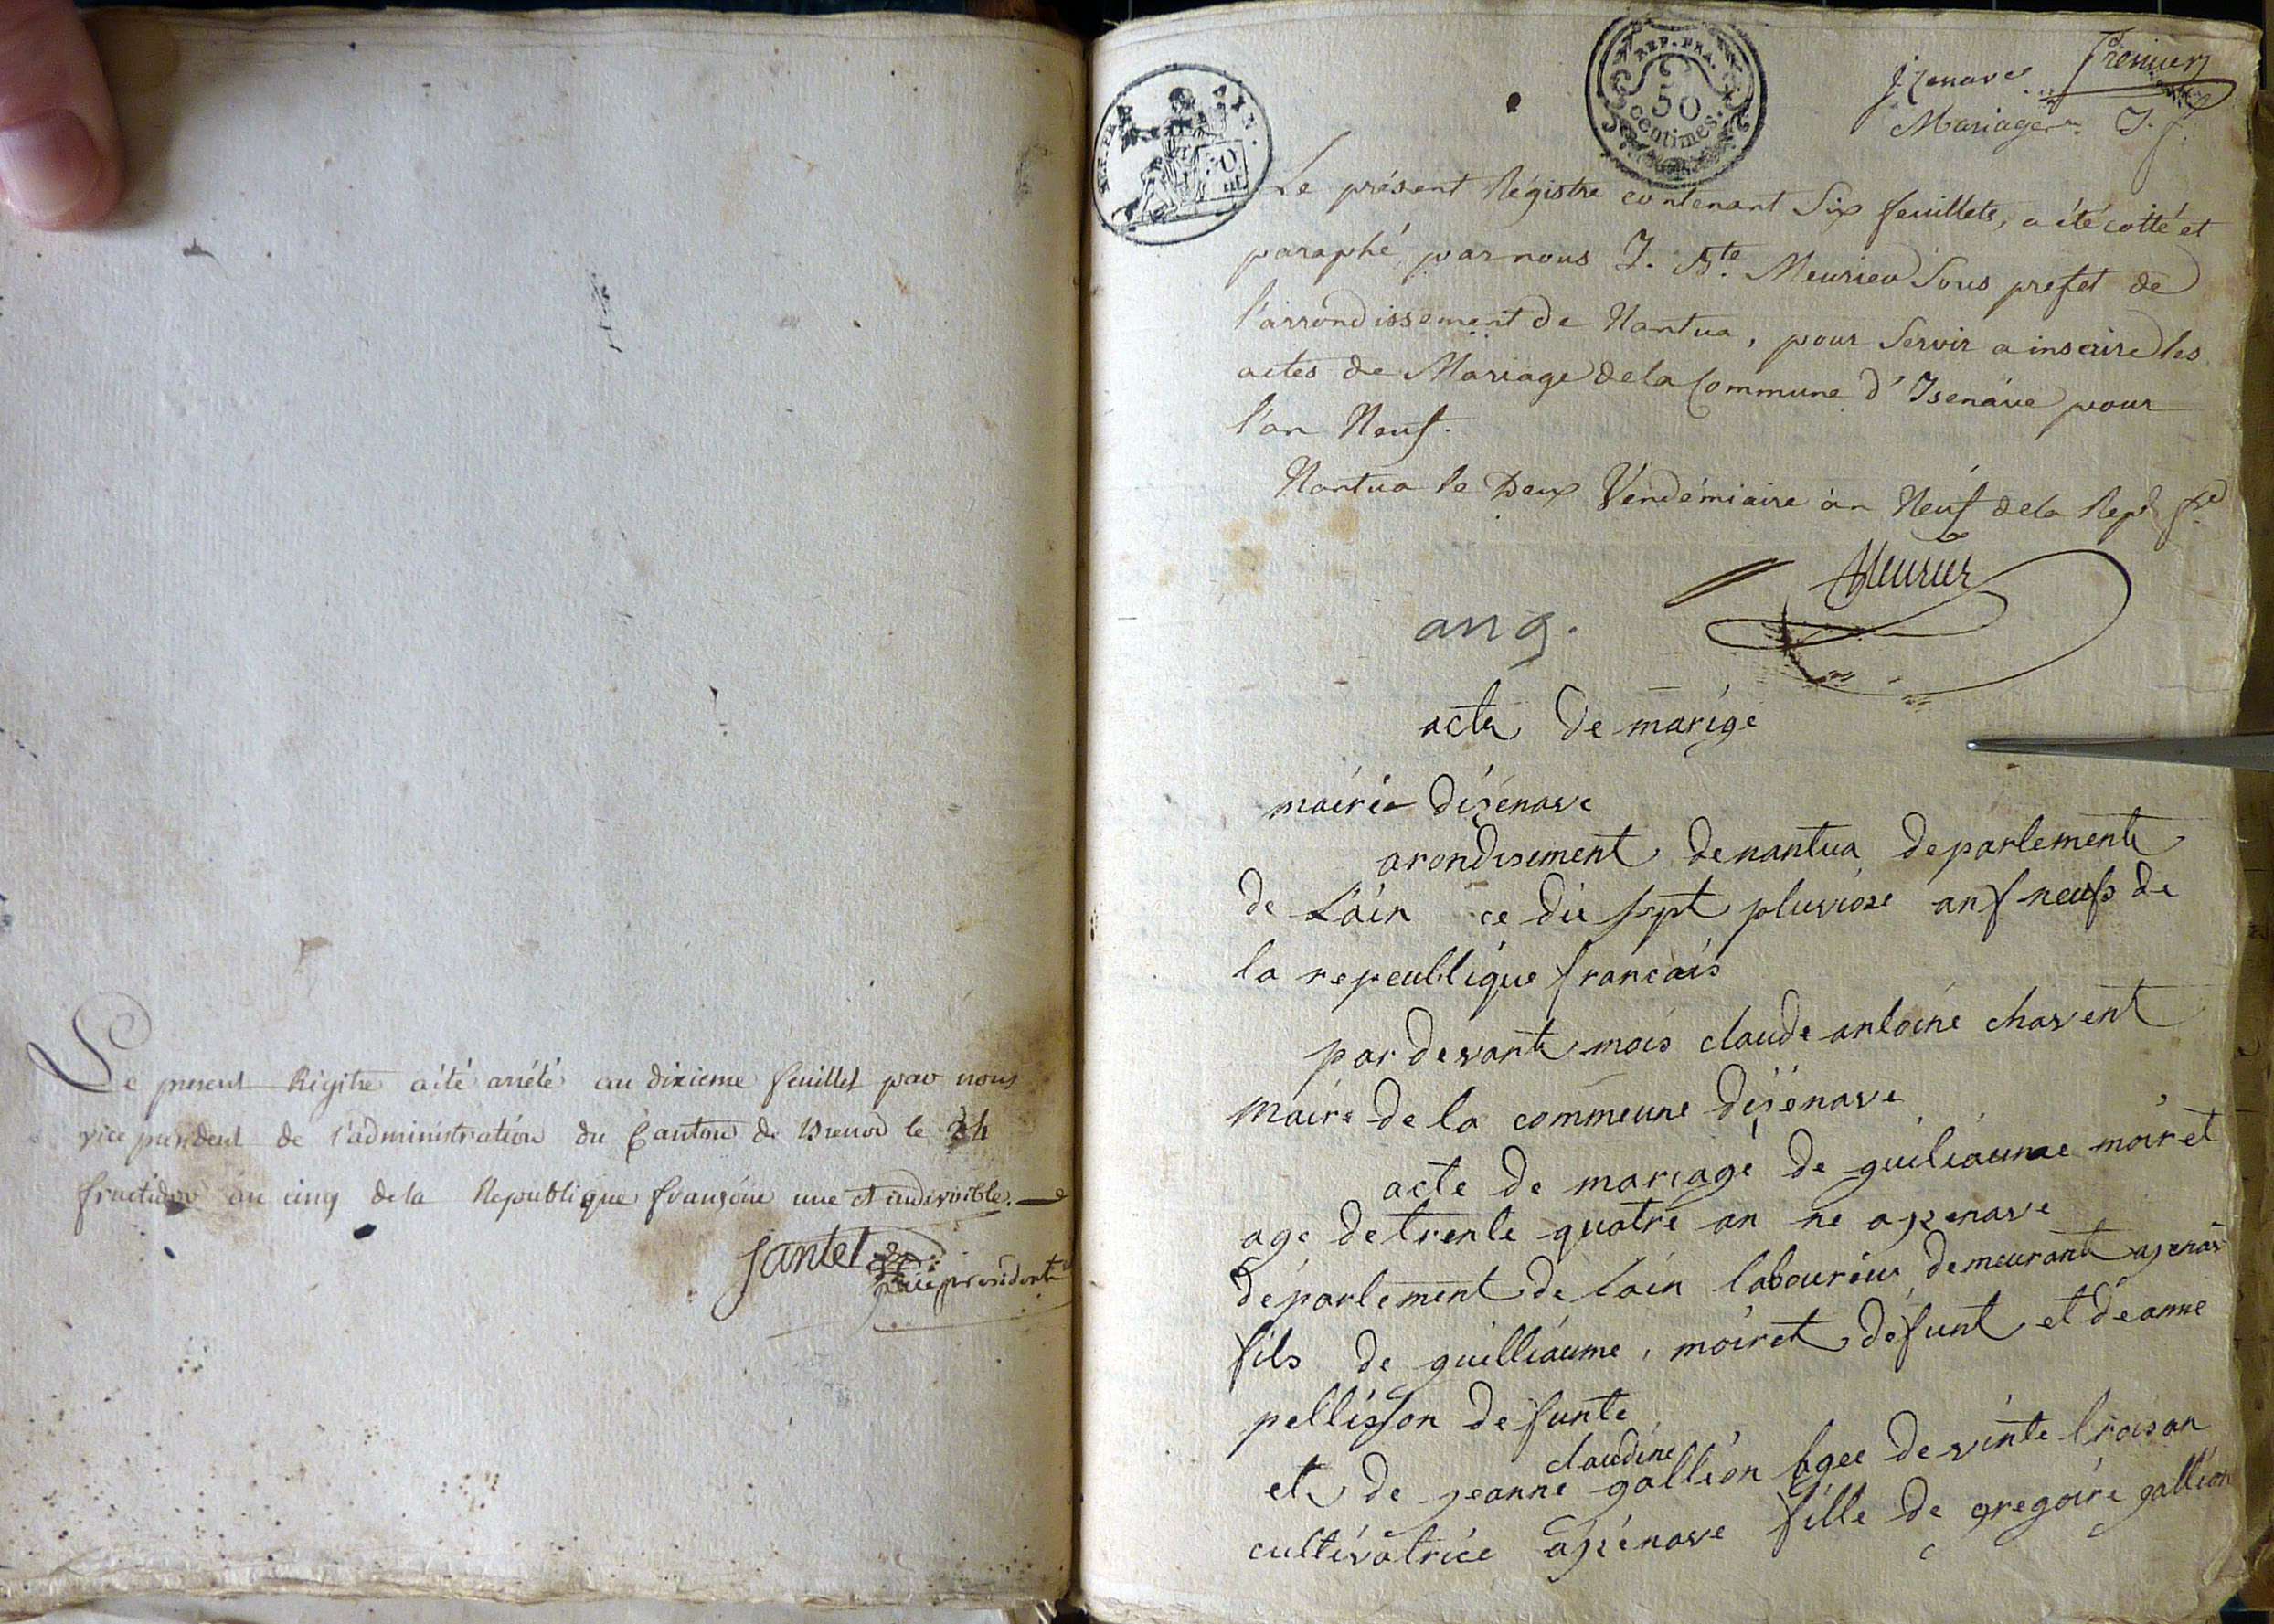 Le present Régitre a été arrété au dixieme feuillet par nous
vice president de l'administration du Canton de Brenod le 24
fructidor an cinq de la Republique françoise une et indivisible.
Jantet
vice president
REP. FRA.
50
centimes.
Izenave Premier
Mariage J.
Le présent Régistre contenant Six feuillets, a été cotté et
paraphé par nous J. Bte. Meurier Sous prefet de
l'arrondissement de Nantua, pour Servir a inscrire les
actes de Mariage de la Commune d'Isenave pour
l'an Neuf.
Nantua le Deux Vendémiaire an Neuf de la Rep. fse
Meurier
an 9.
acte de marige
mairie dizénave
arondisement de nantua departemente
de L'ain ce die sept pluviose anf neufs de
la repeublique francais
par devante mois claude antoine chavent
maire de la commeune dizénave
acte de mariagé de guiliaumae moiret
age de trente quatre an ne a izenave
département de lain laboureiur demeurant a izenav
fils de guilliaume, moiret défunt et de anne
pellisson defunte
claudine
et de jeanne gallion agee de vinte trois an
cultivatrice a izénave fille de gregoire gallion